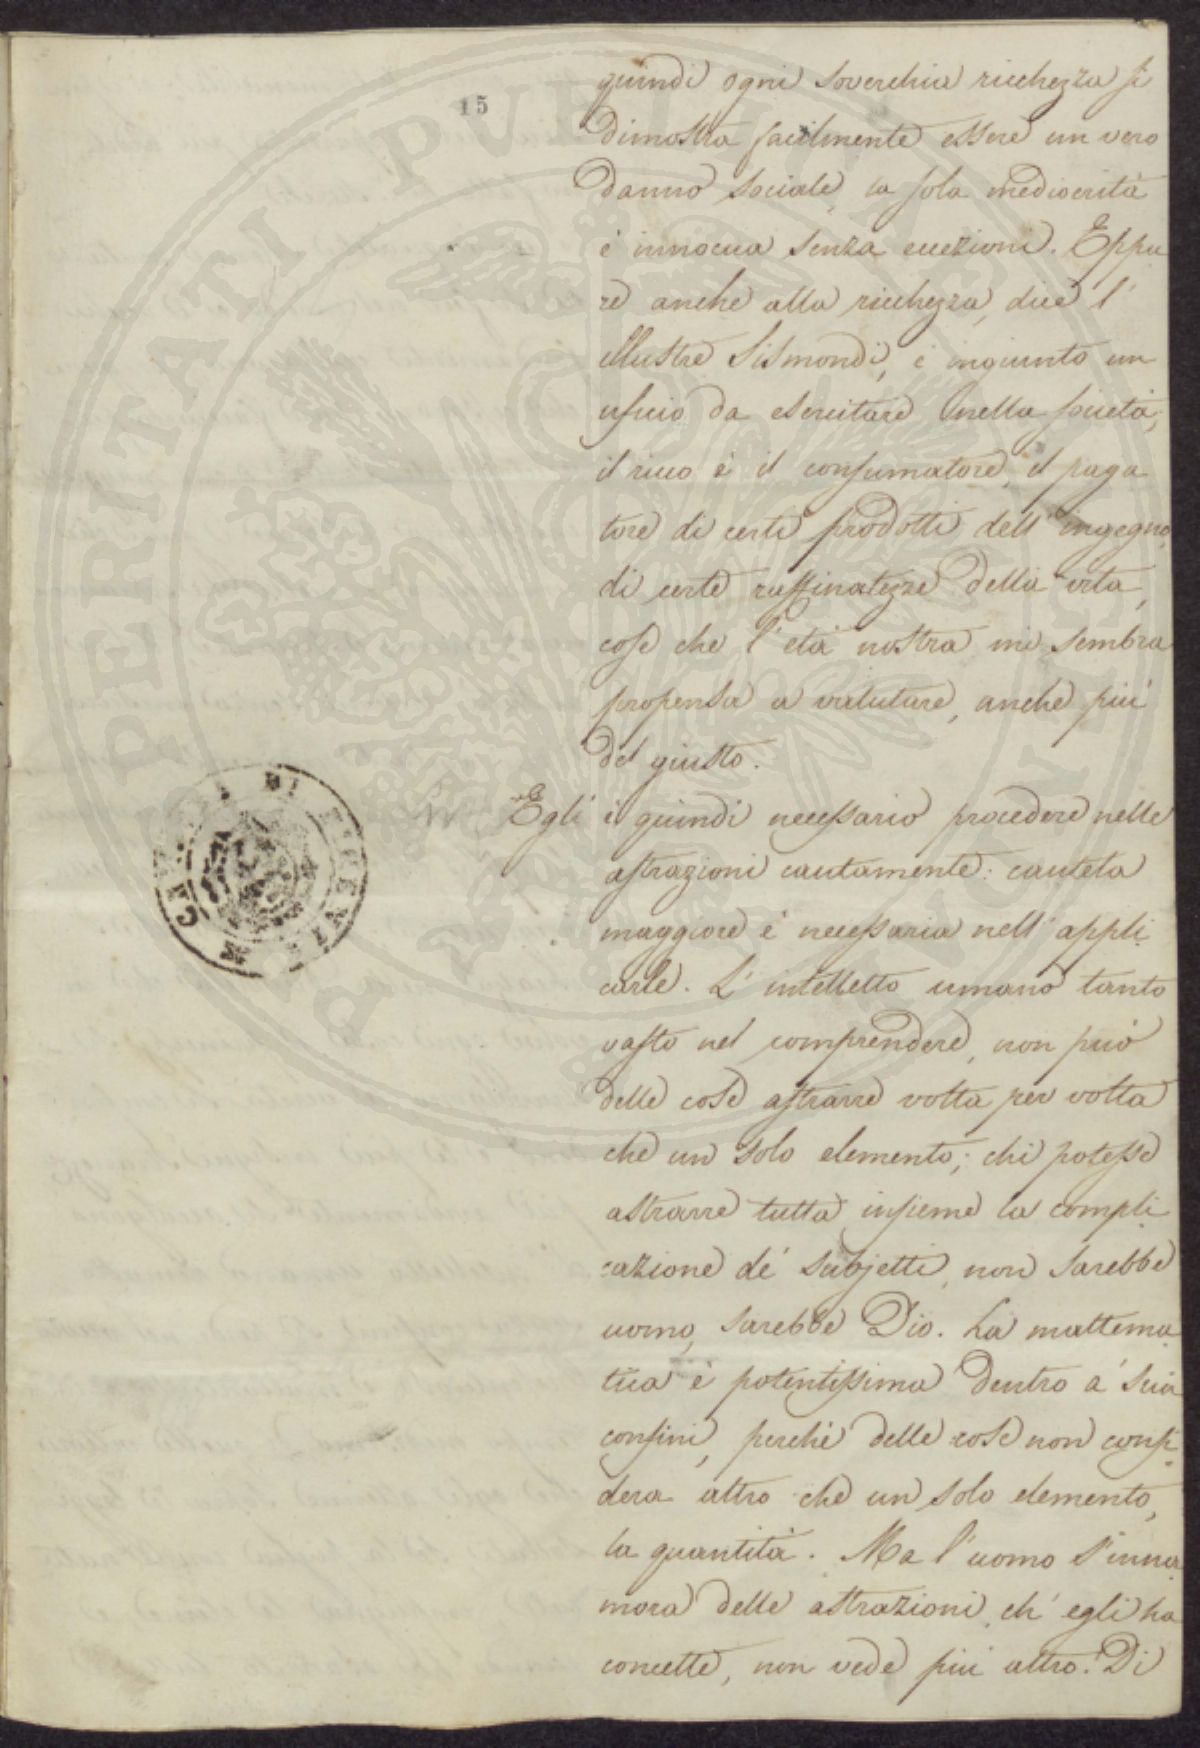 15
quindi ogni soverchia ricchezza si
dimostra facilmente essere un vero
danno sociale, la sola mediocrità
è innocua senza eccezioni. Eppu
re anche alla ricchezza, dice l'
illustre Sismondi, è ingiunto un
uficio da esercitare nella società;
il ricco è il consumatore, il paga
tore di certi prodotti dell'ingegno,
di certe raffinatezze della vita,
cose che l'età nostra mi sembra
propensa a valutare, anche più
del giusto.
Egli è quindi necessario procedere nelle
astrazioni cautamente: cautela
maggiore è necessaria nell'appli
carle. L'intelletto umano tanto
vasto nel comprendere, non può
delle cose astrarre volta per volta
che un solo elemento; chi potesse
astrarre tutta insieme la compli
cazione de' subjetti, non sarebbe
uomo, sarebbe Dio. La mattema
tica è potentissima dentro a' suoi
confini, perchè delle cose non consi
dera altro che un solo elemento,
la quantità. Ma l'uomo s'inna
mora delle astrazioni ch'egli ha
concette, non vede più altro. Di
PERITATI PVBLICAE
DI